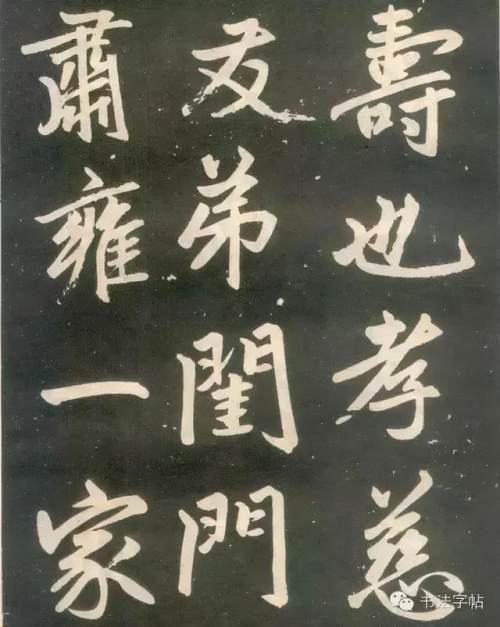 壽也孝慈
友弟閨門
肅雍一家
书法字帖